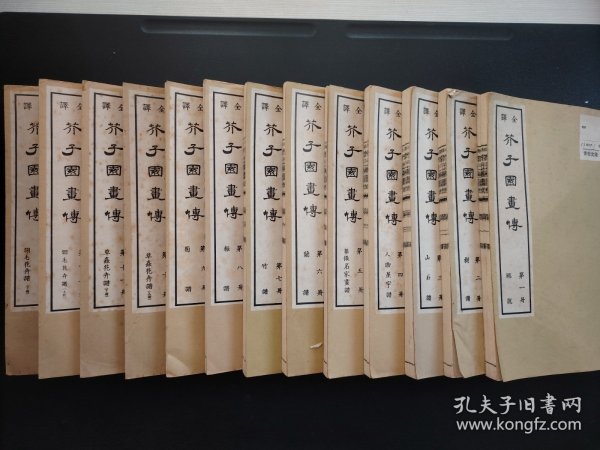 全譯
芥子園畫傳
第一册
概說
全譯
芥子園畫傳
第二册
樹譜
全譯
芥子園畫傳
第三
山石譜
全譯
芥子園畫傳
第四册
人物屋宇譜
全譯
芥子園畫傳
第五册
摹倣名家畫譜
全譯
芥子園畫傳
第六册
蘭譜
全譯
芥子園畫傳
第七册
竹譜
全譯
芥子園畫傳
第八册
梅譜
全譯
芥子園畫傳
第九册
菊譜
全譯
芥子園畫傳
第十册
草蟲花卉譜
全譯
芥子園畫傳
第十一
草蟲花卉譜
全譯
芥子園畫傳
翎毛花卉譜
全譯
芥子園畫傳
翎毛花卉譜
孔夫子旧书网
www.kongfz.com